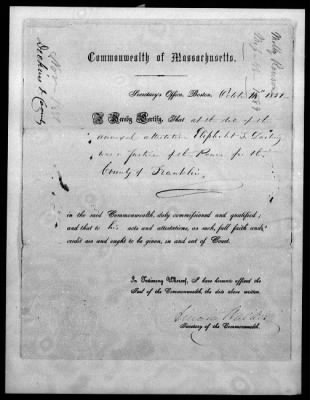 Commonwealth of Massachusetts.
Secretary's Office, Boston, October
I Hereby Certify, That at the date of the
annexed attestation
was a Justice of the Peace for the
County of Franklin
in the said Commonwealth, duly commissioned and qualified;
and that to his acts and attestations, as such, full faith and
credit are and ought to be given, in and out of Court.
In Testimony Whereof, I have hereunto affixed the
Seal of the Commonwealth, the date above written.
Secretary of the Commonwealth.